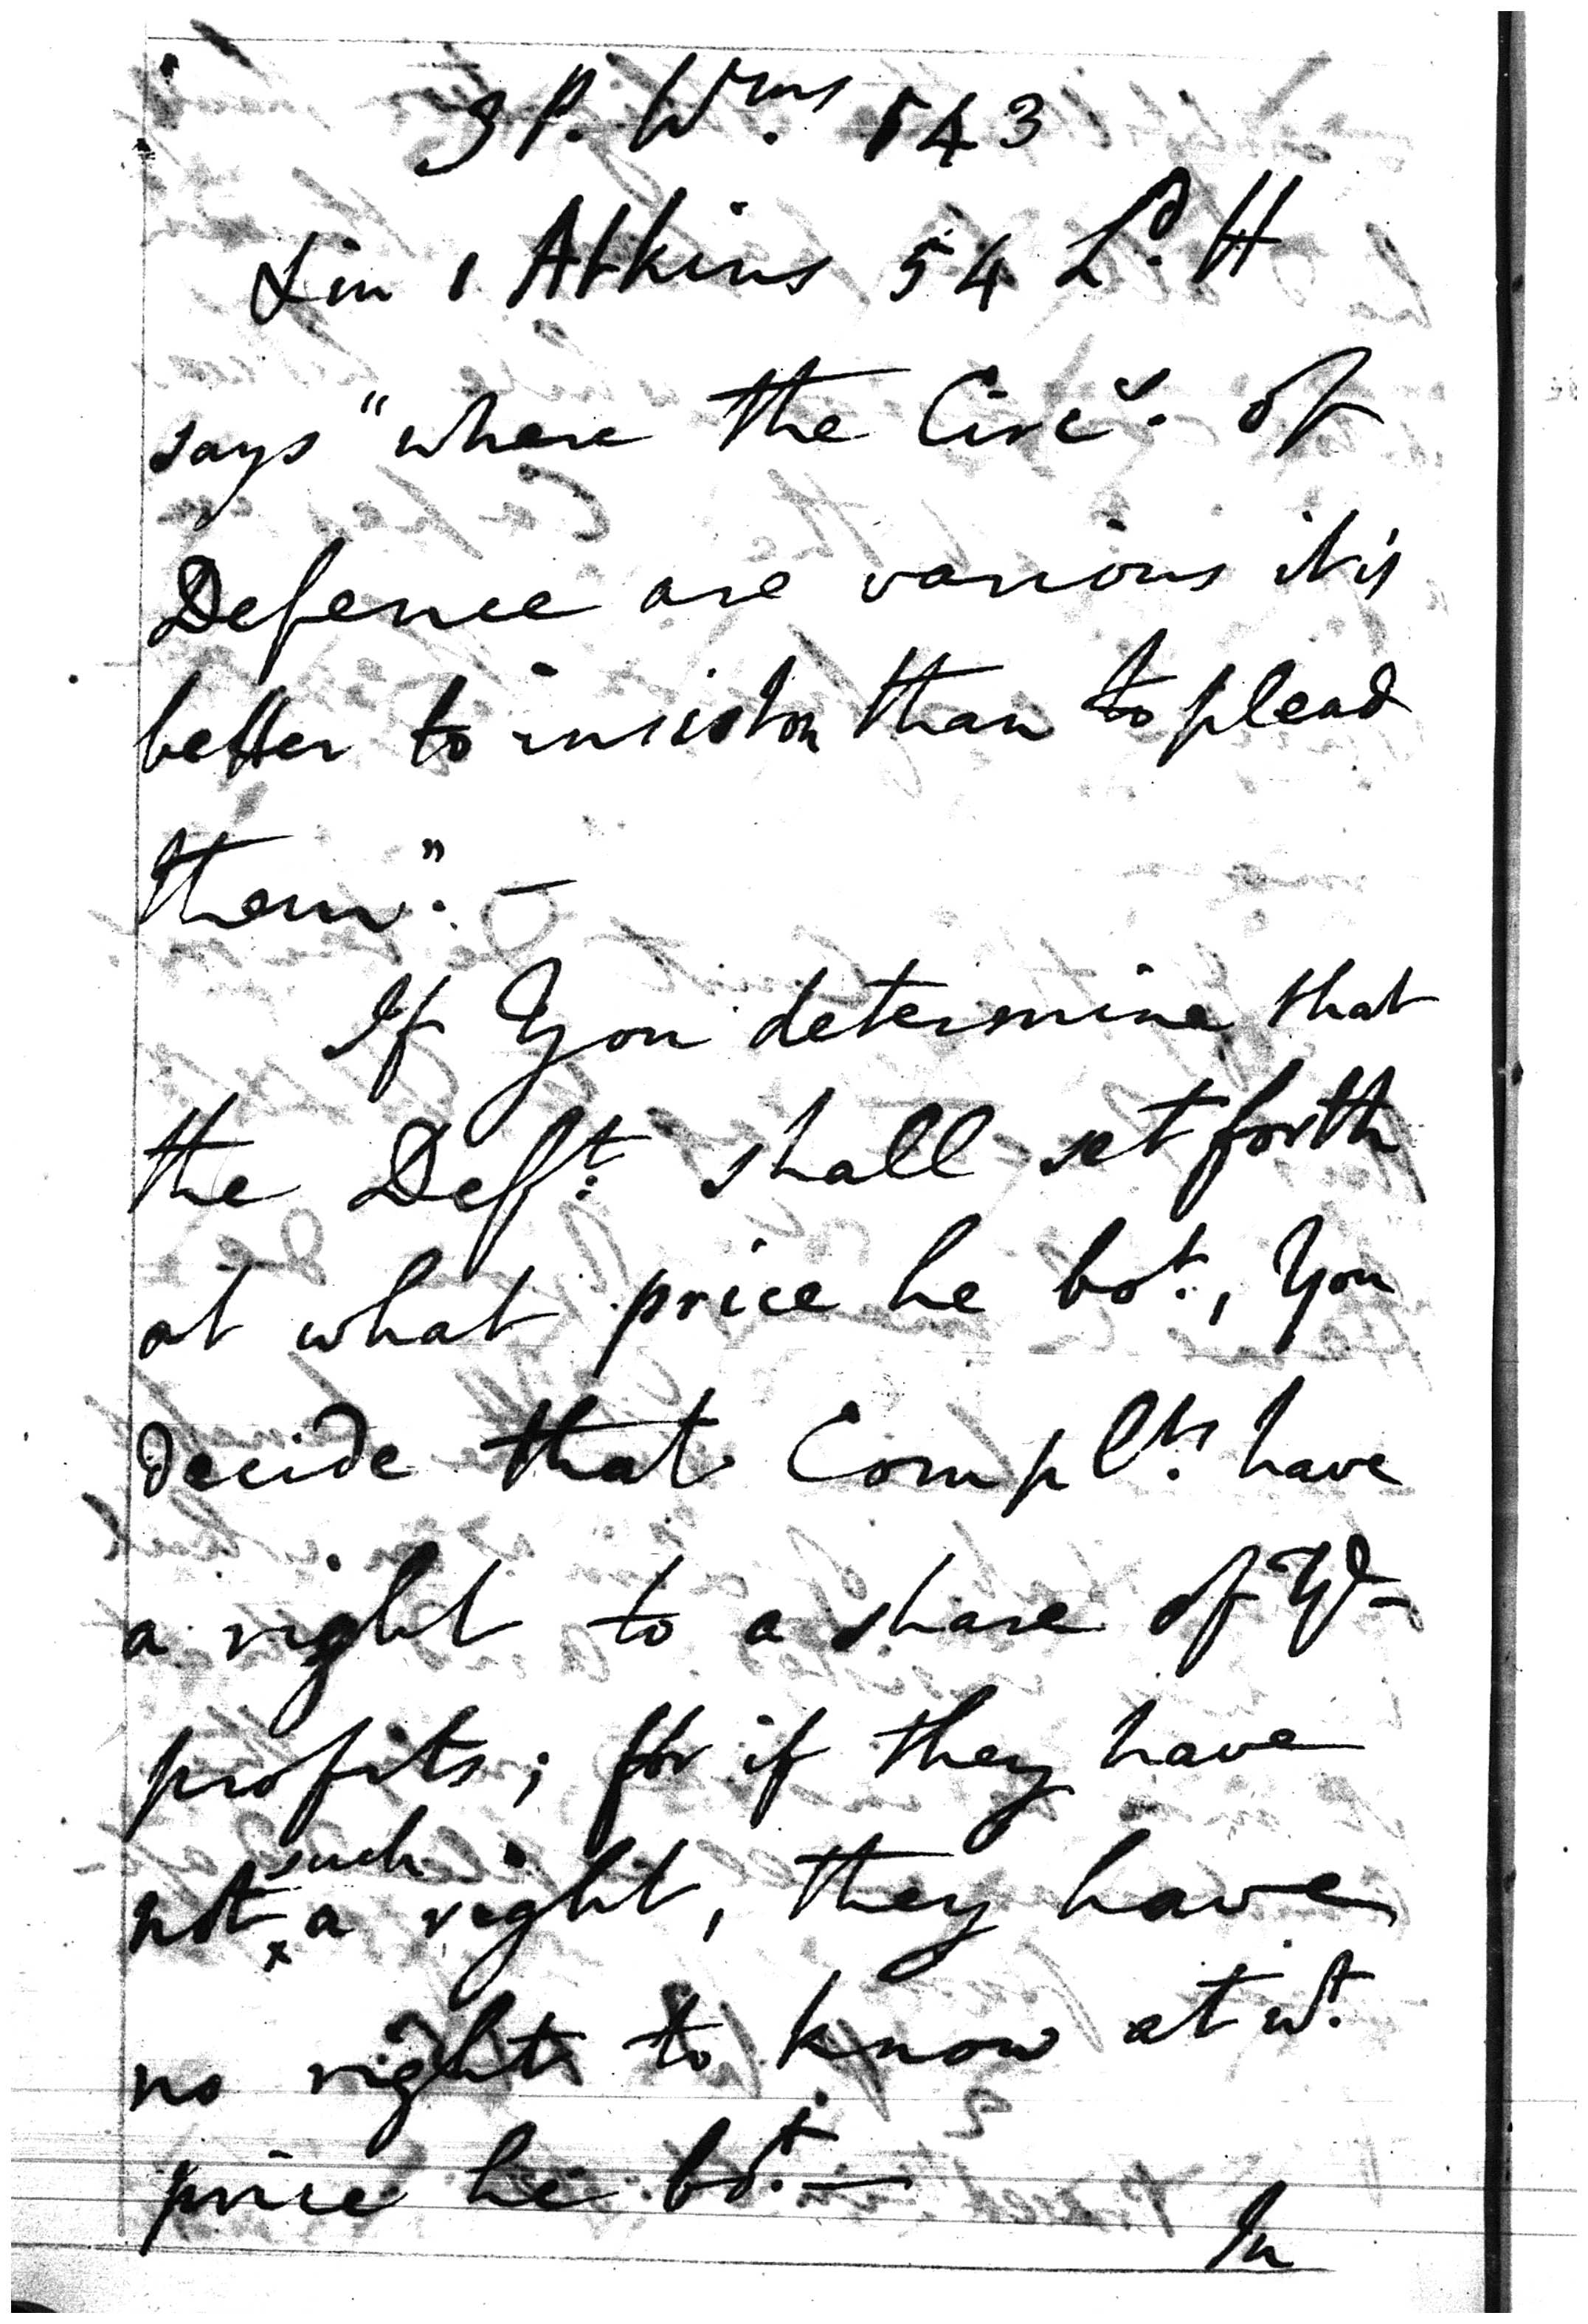 3 P. Wms. 543
& in 1 Atkins 54 Ld. H
says "where the Circs. of
Defence are various it is
better to insist on than to plead
them". —
If You determine that
the Deft. shall set forth
at what price he bot., You
decide that Complts. have
a right to a share of ye
profits; for if they have
not such a right, they have
no right to know at wt.
price he bot. —
In